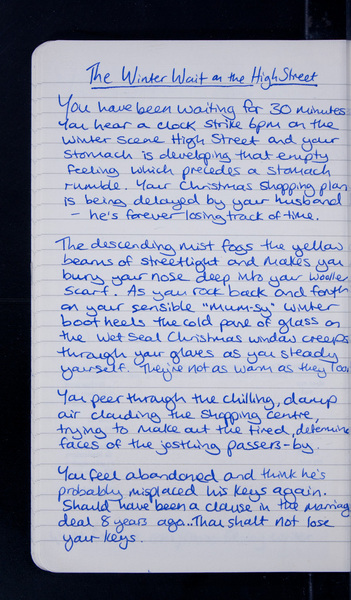 The Winter Wait on the High Street
You have been waiting for 30 minutes
You hear a clock strike 6pm on the
winter scene High Street and your
stomach is developing that empty
feeling which precedes a stomach
rumble. Your Christmas shopping plan
is being delayed by your husband
- he's forever losing track of time.
The descending mist fogs the yellow
beams of streetlight and makes you
bury your nose deep into your woollen
scarf. As you rock back and forth
on your sensible "mum-sy" winter
boot heels the cold pane of glass on
the Wet Seal Christmas window creeps
through your gloves as you steady
yourself. They're not as warm as they look
You peer through the chilling, damp
air clouding the shopping centre,
trying to make out the tired, determine
faces of the jostling passers-by.
You feel abandoned and think he's
probably misplaced his keys again.
Should have been a clause in the marriag
deal 8 years ago.. Thou shalt not lose
your keys.